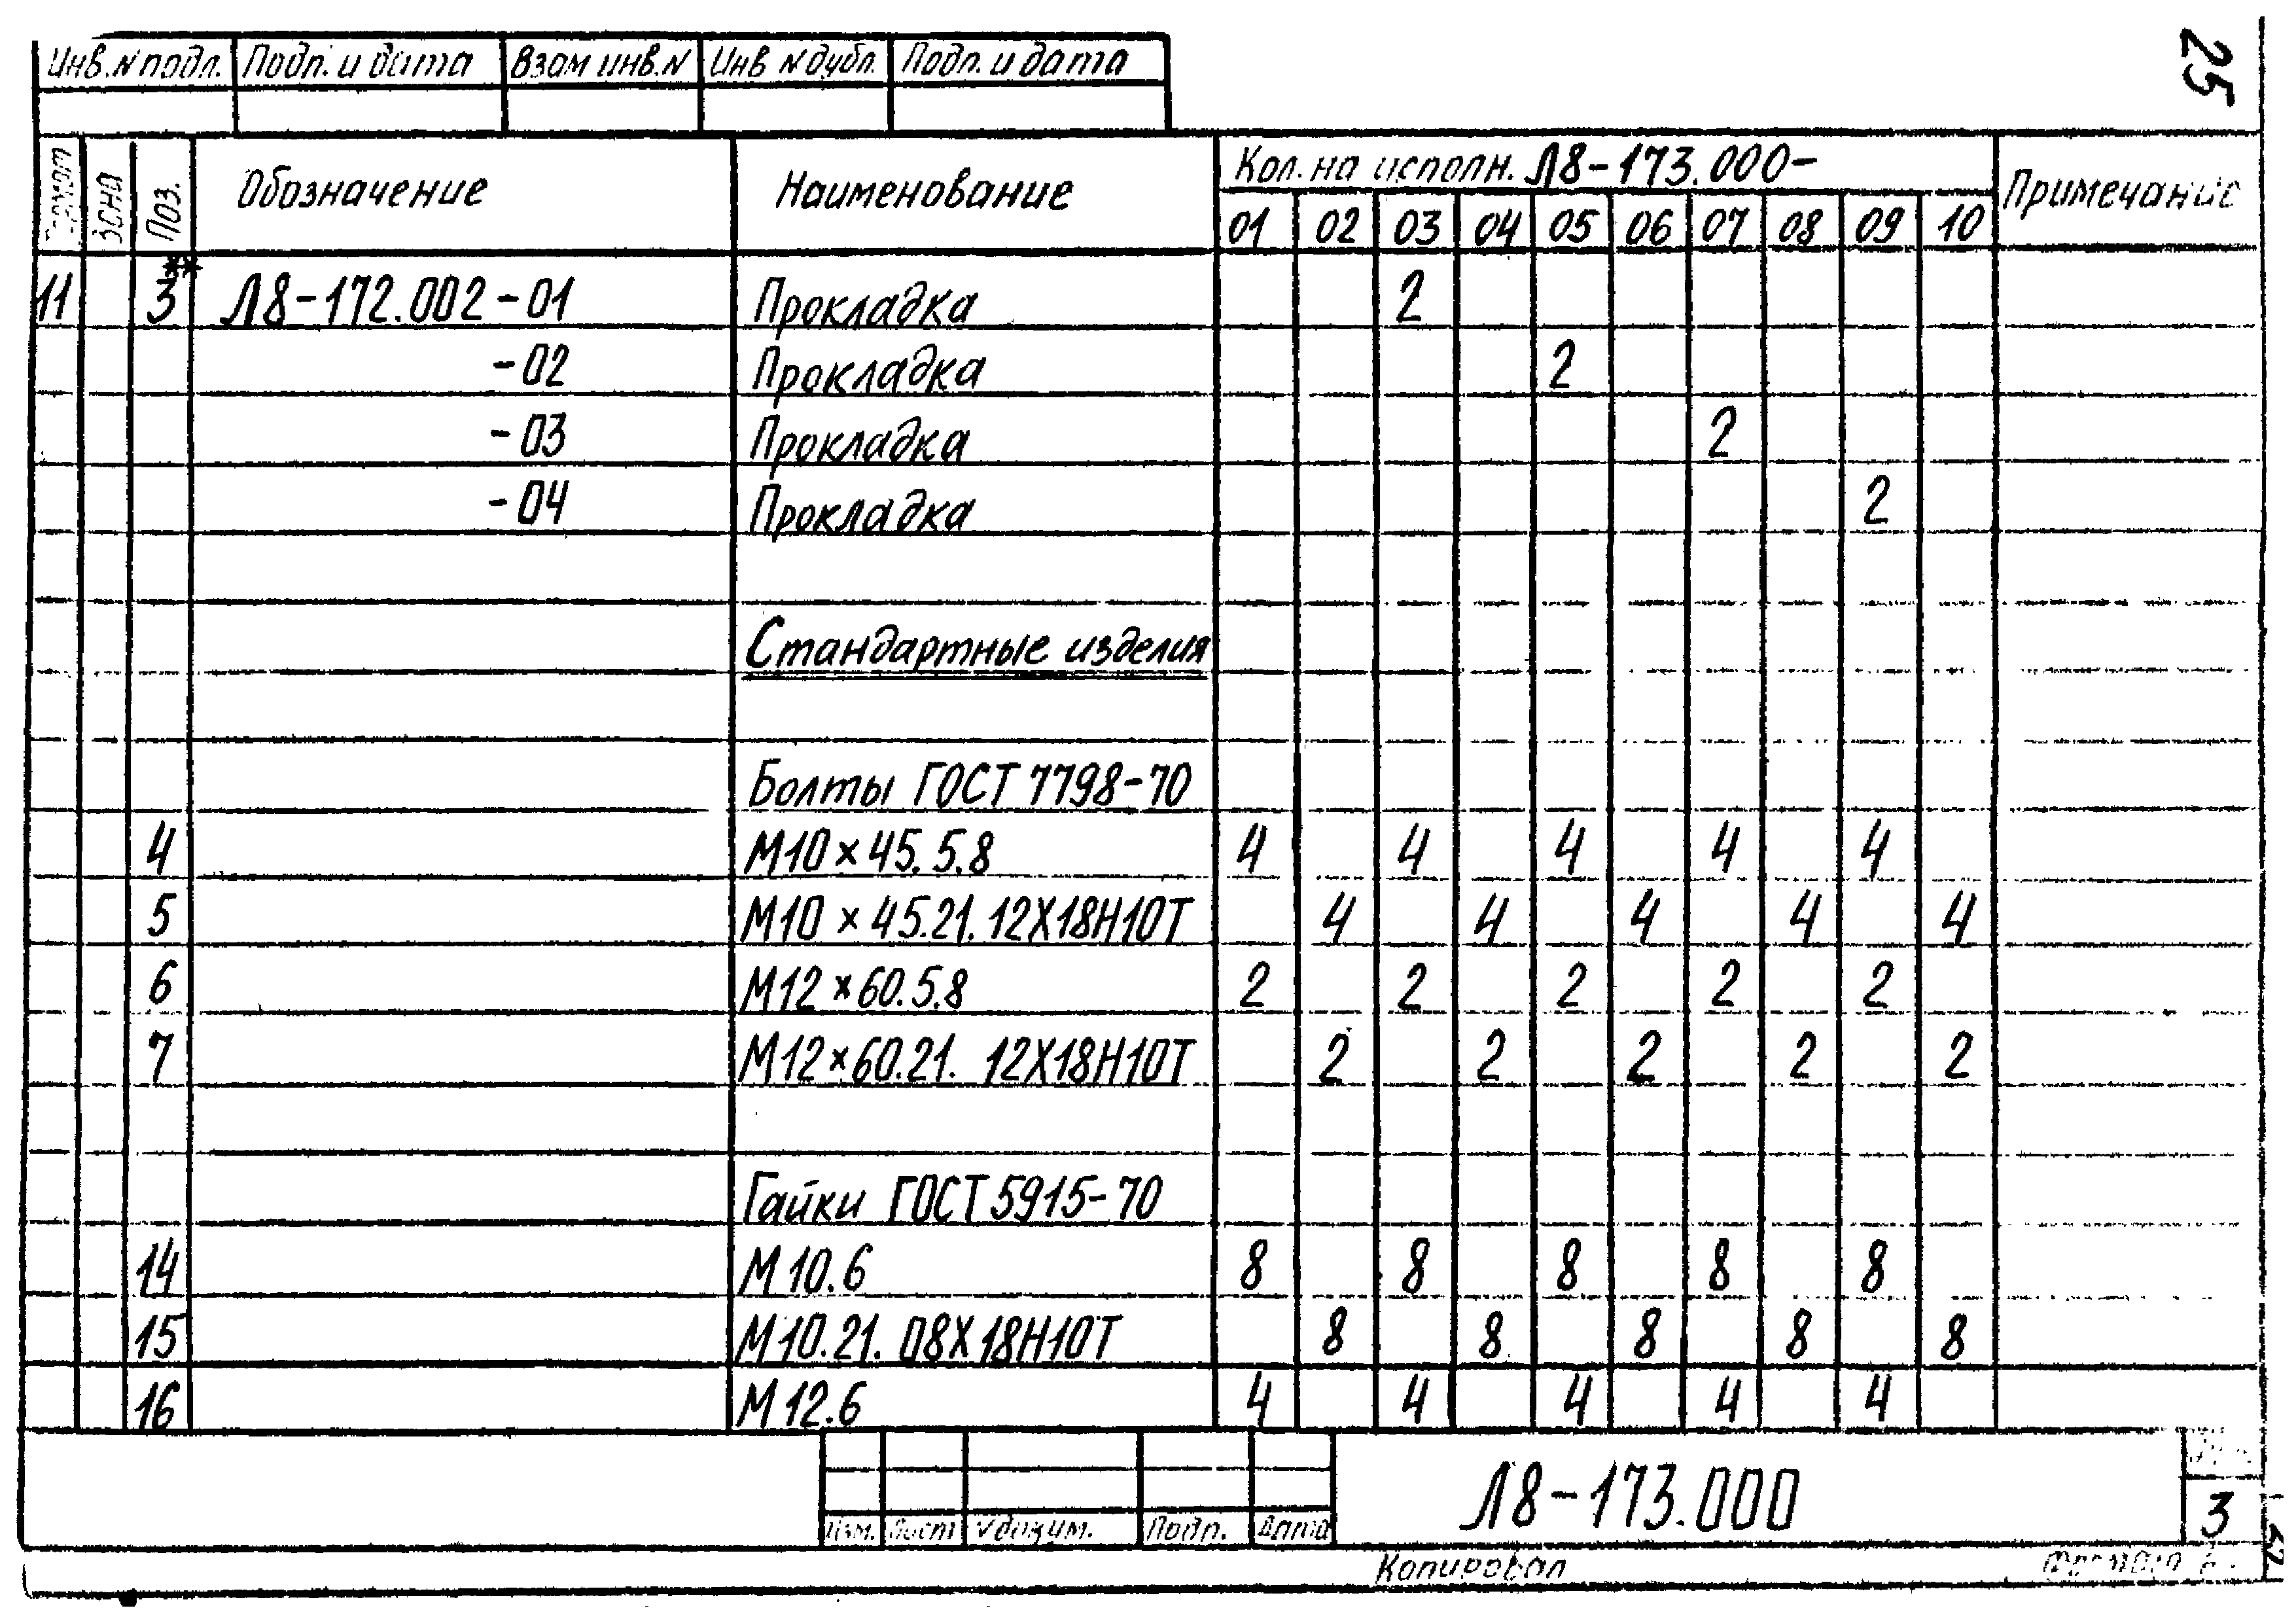 25
Инв.N подл. Подп. и дата Взам инв.N Инв N дубл. Подп. и дата
Формат Зона Поз. Обозначение Наименование Кол. на исполн. Л8-173.000- Примечание
01 02 03 04 05 06 07 08 09 10
11 3** Л8-172.002-01 Прокладка 2
-02 Прокладка 2
-03 Прокладка 2
-04 Прокладка 2
Стандартные изделия
Болты ГОСТ 7798-70
4 М10×45.5.8 4 4 4 4 4
5 М10×45.21.12Х18Н10Т 4 4 4 4 4
6 М12×60.5.8 2 2 2 2 2
7 М12×60.21.12Х18Н10Т 2 2 2 2 2
Гайки ГОСТ 5915-70
14 М10.6 8 8 8 8 8
15 М10.21.08Х18Н10Т 8 8 8 8 8
16 М12.6 4 4 4 4 4
Л8-173.000
3
Изм. Лист № докум. Подп. Дата
Копировал Формат